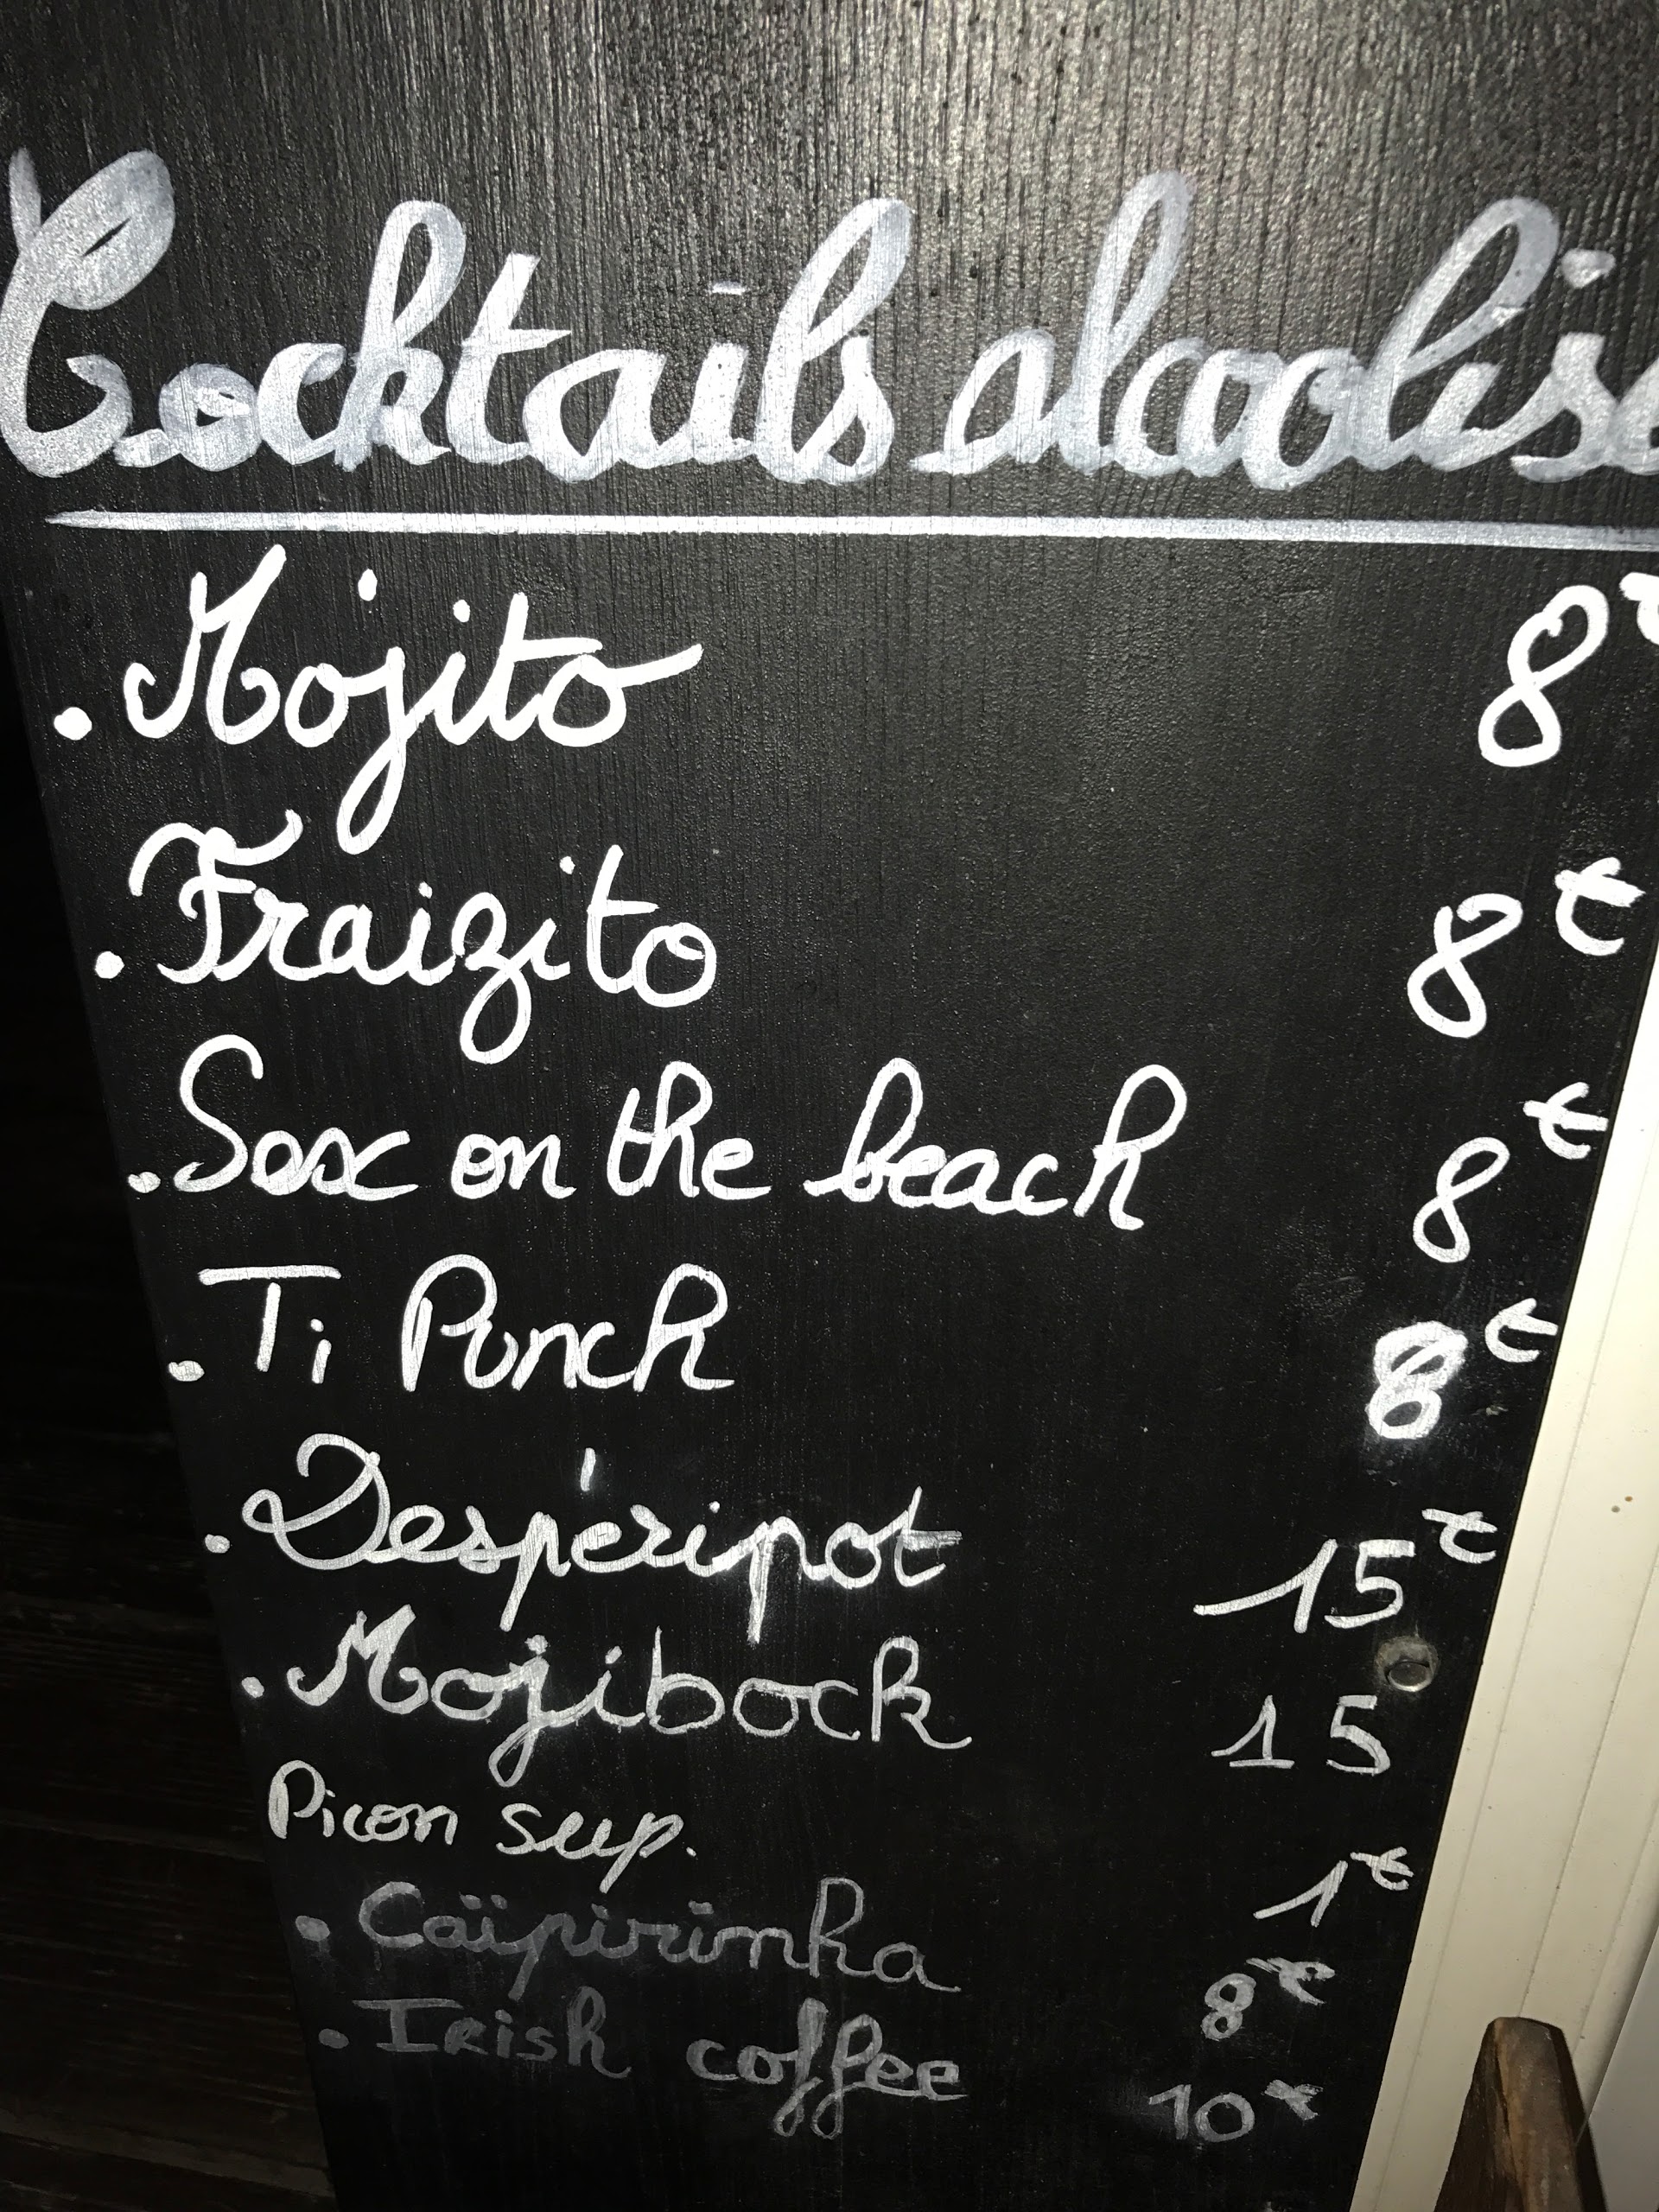 Cocktails alcoolisé
. Mojito 8€
. Fraizito 8€
. Sex on the beach 8€
. Ti Punch 8€
. Despéripot 15€
. Mojibock 15
Picon sup. 1€
. Caïpirinha 8€
. Irish coffee 10€